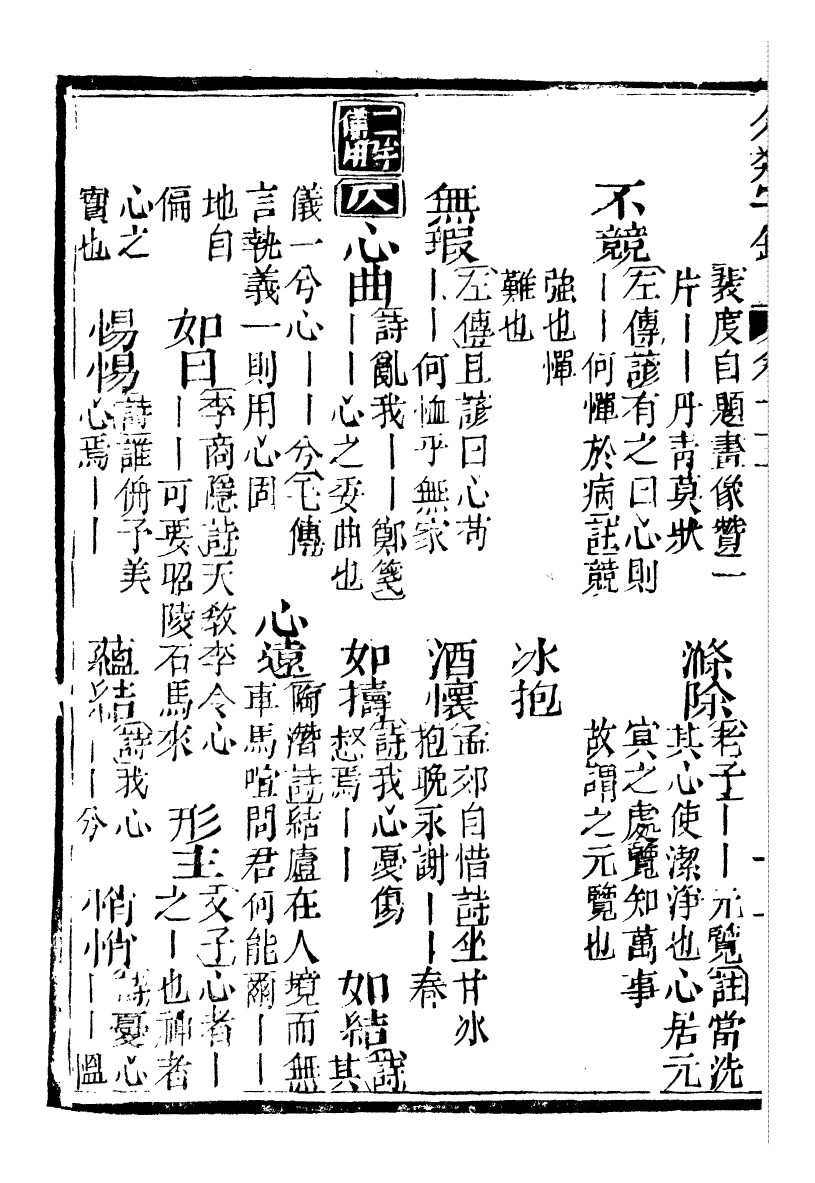 裴度自題畫像贊一
片丨丨丹靑莫狀
滌除
老子丨丨元覽註當洗
其心使潔淨也心居元
㝠之處覽知萬事
故謂之元覽也
不競
左傳諺有之曰心則
丨丨何憚於病註競
強也憚
難也
冰抱
無瑕
左傳且諺曰心苟
丨丨何恤乎無家
酒懷
孟郊自惜詩坐甘冰
抱晚永謝丨丨春
二字備用
仄
心曲
詩亂我丨丨鄭箋
丨丨心之委曲也
如擣
詩我心憂傷
惄焉丨丨
如結
詩其
儀一兮心丨丨兮毛傳
言執義一則用心固
心遠
陶潛詩結廬在人境而無
車馬喧問君何能爾丨丨
地自
偏
如日
李商隱詩天敎李令心
丨丨可要昭陵石馬來
形主
文子心者丨
之丨也神者
心之
寶也
惕惕
詩誰侜予美
心焉丨丨
蘊結
詩我心
丨丨兮
悄悄
詩憂心
丨丨慍